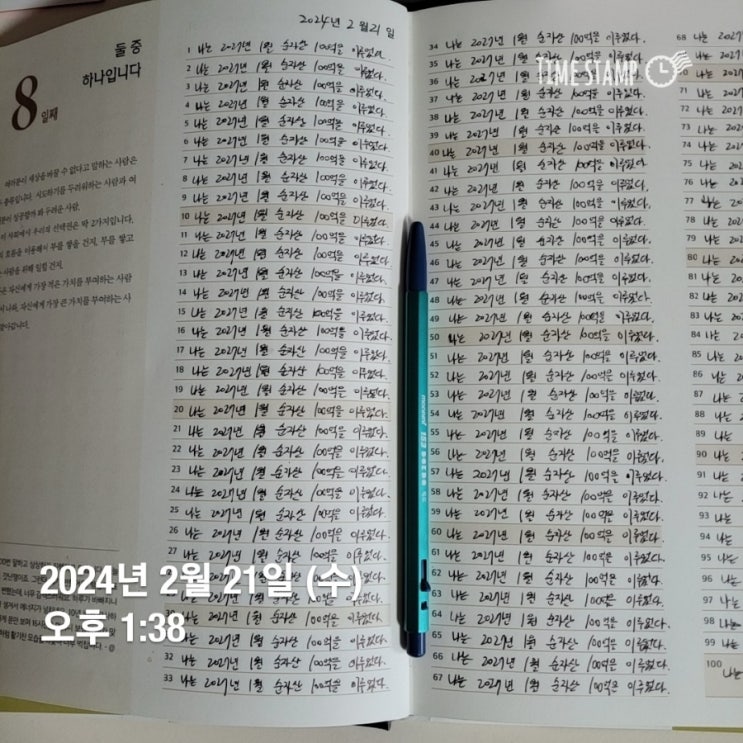 둘 중
하나입니다
8일째
2024년 2월 21일
1 나는 2027년 1월 순자산 100억을 이루었다.
2 나는 2027년 1월 순자산 100억을 이루었다.
3 나는 2027년 1월 순자산 100억을 이루었다.
4 나는 2027년 1월 순자산 100억을 이루었다.
5 나는 2027년 1월 순자산 100억을 이루었다.
6 나는 2027년 1월 순자산 100억을 이루었다.
7 나는 2027년 1월 순자산 100억을 이루었다.
8 나는 2027년 1월 순자산 100억을 이루었다.
9 나는 2027년 1월 순자산 100억을 이루었다.
10 나는 2027년 1월 순자산 100억을 이루었다.
11 나는 2027년 1월 순자산 100억을 이루었다.
12 나는 2027년 1월 순자산 100억을 이루었다.
13 나는 2027년 1월 순자산 100억을 이루었다.
14 나는 2027년 1월 순자산 100억을 이루었다.
15 나는 2027년 1월 순자산 100억을 이루었다.
16 나는 2027년 1월 순자산 100억을 이루었다.
17 나는 2027년 1월 순자산 100억을 이루었다.
18 나는 2027년 1월 순자산 100억을 이루었다.
19 나는 2027년 1월 순자산 100억을 이루었다.
20 나는 2027년 1월 순자산 100억을 이루었다.
21 나는 2027년 1월 순자산 100억을 이루었다.
22 나는 2027년 1월 순자산 100억을 이루었다.
23 나는 2027년 1월 순자산 100억을 이루었다.
24 나는 2027년 1월 순자산 100억을 이루었다.
25 나는 2027년 1월 순자산 100억을 이루었다.
26 나는 2027년 1월 순자산 100억을 이루었다.
27 나는 2027년 1월 순자산 100억을 이루었다.
나는 2027년 1월 순자산 100억을 이루었다.
나는 2027년 1월 순자산 100억을 이루었다.
나는 2027년 1월 순자산 100억을 이루었다.
나는 2027년 1월 순자산 100억을 이루었다.
32 나는 2027년 1월 순자산 100억을 이루었다.
33 나는 2027년 1월 순자산 100억을 이루었다.
34 나는 2027년 1월 순자산 100억을 이루었다.
35 나는 2027년 1월 순자산 100억을 이루었다.
36 나는 2027년 1월 순자산 100억을 이루었다.
37 나는 2027년 1월 순자산 100억을 이루었다.
38 나는 2027년 1월 순자산 100억을 이루었다.
39 나는 2027년 1월 순자산 100억을 이루었다.
40 나는 2027년 1월 순자산 100억을 이루었다.
41 나는 2027년 1월 순자산 100억을 이루었다.
42 나는 2027년 1월 순자산 100억을 이루었다.
43 나는 2027년 1월 순자산 100억을 이루었다.
44 나는 2027년 1월 순자산 100억을 이루었다.
45 나는 2027년 1월 순자산 100억을 이루었다.
46 나는 2027년 1월 순자산 100억을 이루었다.
47 나는 2027년 1월 순자산 100억을 이루었다.
48 나는 2027년 1월 순자산 100억을 이루었다.
49 나는 2027년 1월 순자산 100억을 이루었다.
50 나는 2027년 1월 순자산 100억을 이루었다.
51 나는 2027년 1월 순자산 100억을 이루었다.
52 나는 2027년 1월 순자산 100억을 이루었다.
53 나는 2027년 1월 순자산 100억을 이루었다.
54 나는 2027년 1월 순자산 100억을 이루었다.
55 나는 2027년 1월 순자산 100억을 이루었다.
56 나는 2027년 1월 순자산 100억을 이루었다.
57 나는 2027년 1월 순자산 100억을 이루었다.
58 나는 2027년 1월 순자산 100억을 이루었다.
59 나는 2027년 1월 순자산 100억을 이루었다.
60 나는 2027년 1월 순자산 100억을 이루었다.
61 나는 2027년 1월 순자산 100억을 이루었다.
62 나는 2027년 1월 순자산 100억을 이루었다.
63 나는 2027년 1월 순자산 100억을 이루었다.
64 나는 2027년 1월 순자산 100억을 이루었다.
65 나는 2027년 1월 순자산 100억을 이루었다.
66 나는 2027년 1월 순자산 100억을 이루었다.
67 나는 2027년 1월 순자산 100억을 이루었다.
68 나는
73 나는
74 나는
75 나는
76 나는
77 나는
78 나는
79 나는
80 나는
81 나는
82 나는
83 나는
84 나는
85 나는
86 나는
87 나는
88 나는
89 나는
90 나는
91 나는
92 나는
93 나는
94 나는
95 나는
96 나는
97 나는
98 나는
99 나는
100
나는
TIMESTAMP
2024년 2월 21일 (수)
오후 1:38